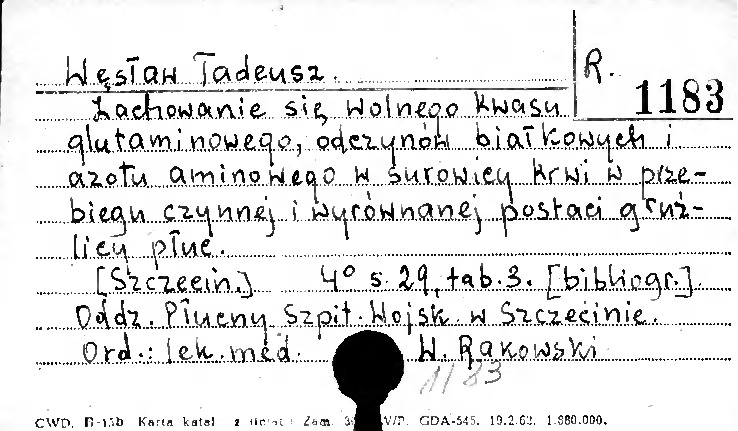 Węsław Tadeusz.
R. 1183
Zachowanie się wolnego kwasu
glutaminowego, odczynów białkowych i
azotu aminowego w surowicy krwi w prze-
biegu czynnej i wyrównanej postaci gruź-
licy płuc.
[Szczecin.] 4° s. 29, tab. 3. [bibliogr.].
Oddz. Płucny Szpit. Wojsk. w Szczecinie.
Ord.: lek. med. W. Rakowski
1183
CWD. Karta katal. Zam. GDA-545. 19.2.62. 1.980.000.